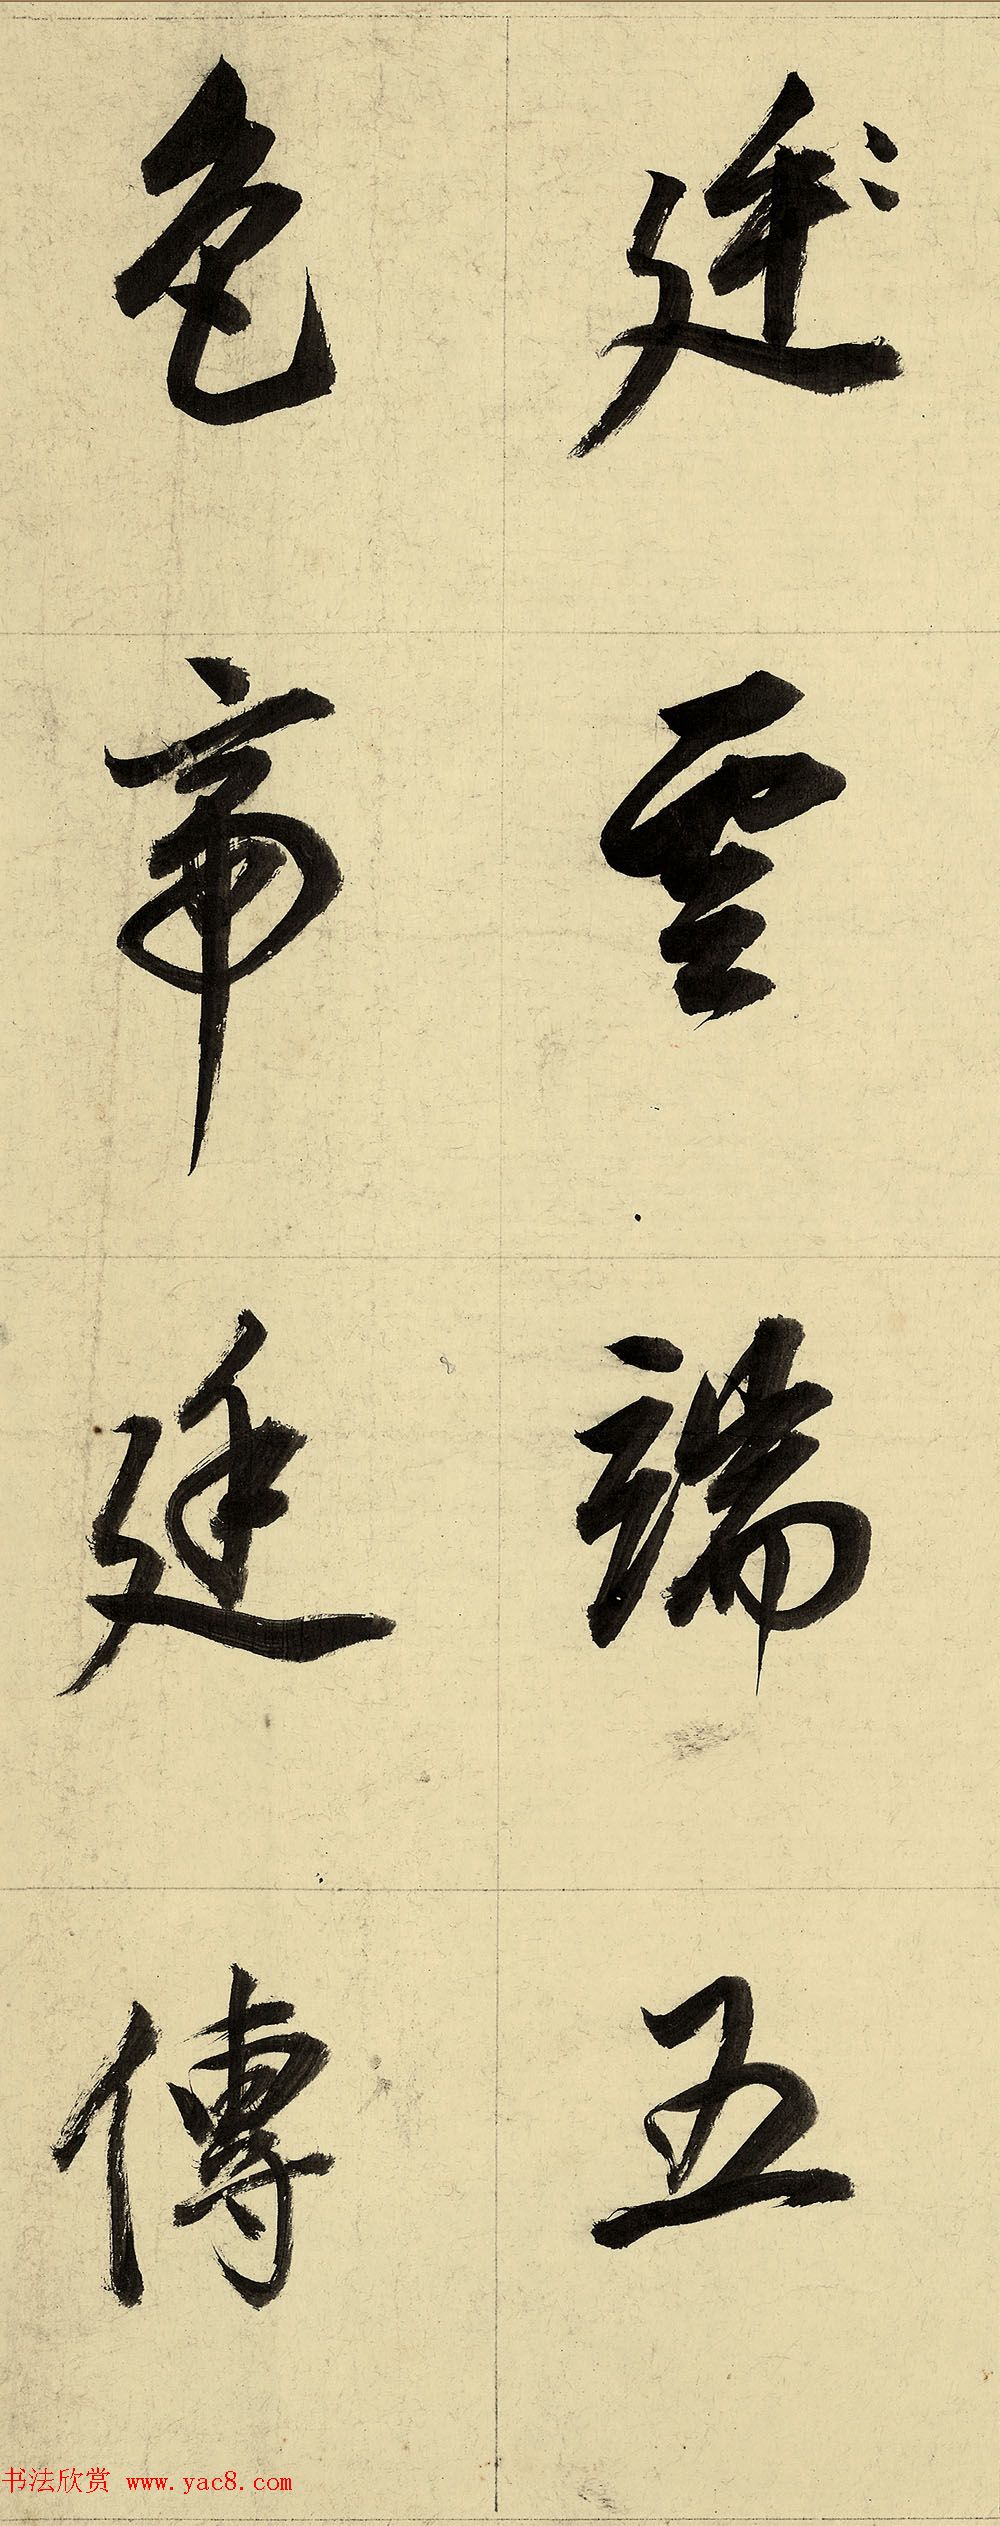 廷雲端五
色帝廷傳
书法欣赏 www.yac8.com